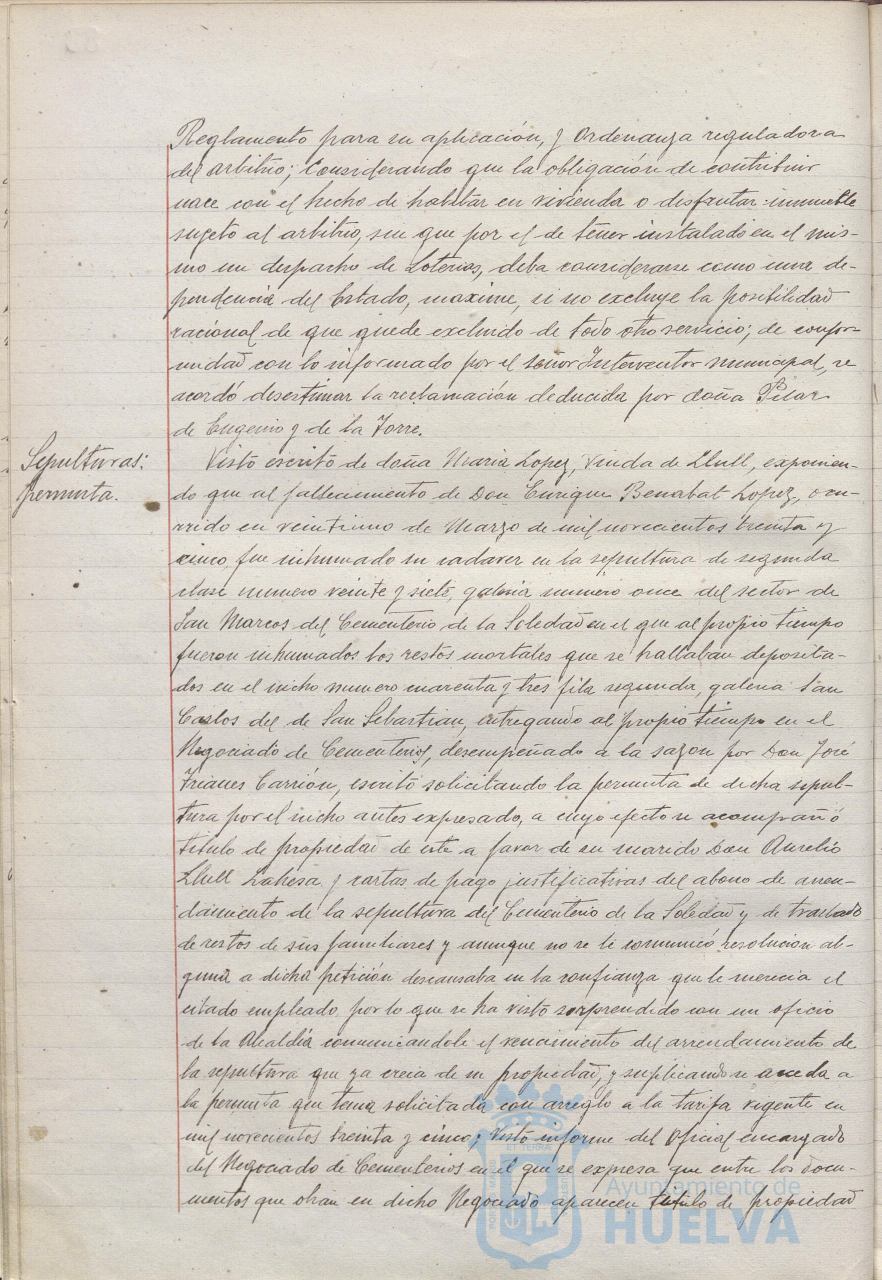 Reglamento para su aplicación, y Ordenanza reguladora
del arbitrio; Considerando que la obligación de contribuir
nace con el hecho de habitar en vivienda o disfrutar inmueble
sugeto al arbitrio, sin que por el de tener instalado en el mis-
mo un despacho de Loterias, deba considerarse como una de-
pendencia del Estado, maxime, si no excluye la posibilidad
racional de que quede excluido de todo otro servicio; de confor-
midad con lo informado por el señor Interventor municipal, se
acordó desestimar la reclamación deducida por doña Pilar
de Eugenio y de la Torre.
Sepulturas:
permuta.
Visto escrito de doña Maria Lopez, Viuda de Llull, exponien-
do que al fallecimiento de Don Enrique Benabat Lopez, ocu-
rrido en veintiuno de Marzo de mil novecientos treinta y
cinco fue inhumado su cadaver en la sepultura de segunda
clase numero veinte y siete, galeria numero once del sector de
San Marcos del Cementerio de la Soledad en el que al propio tiempo
fueron inhumados los restos mortales que se hallaban deposita-
dos en el nicho numero cuarenta y tres fila segunda, galeria San
Carlos del de San Sebastian, entregando al propio tiempo en el
Negociado de Cementerios, desempeñado a la sazon por Don José
Trianes Carrión, escrito solicitando la permuta de dicha sepul-
tura por el nicho antes expresado, a cuyo efecto se acompañó
titulo de propiedad de este a favor de su marido Don Aurelio
Llull y cartas de pago justificativas del abono de arren-
damiento de la sepultura del Cementerio de la Soledad y de traslado
de restos de sus familiares y aunque no se le comunicó resolucion al-
guna a dicha petición descansaba en la confianza que le merecia el
citado empleado, por lo que se ha visto sorprendido con un oficio
de la Alcaldia comunicandole el vencimiento del arrendamiento de
la sepultura que ya creia de su propiedad, y suplicando se acceda a
la permuta que tenia solicitada con arreglo a la tarifa vigente en
mil novecientos treinta y cinco; Visto informe del Oficial encargado
del Negociado de Cementerios en el que se expresa que entre los docu-
mentos que obran en dicho Negociado aparecen titulo de propiedad
Ayuntamiento de
HUELVA